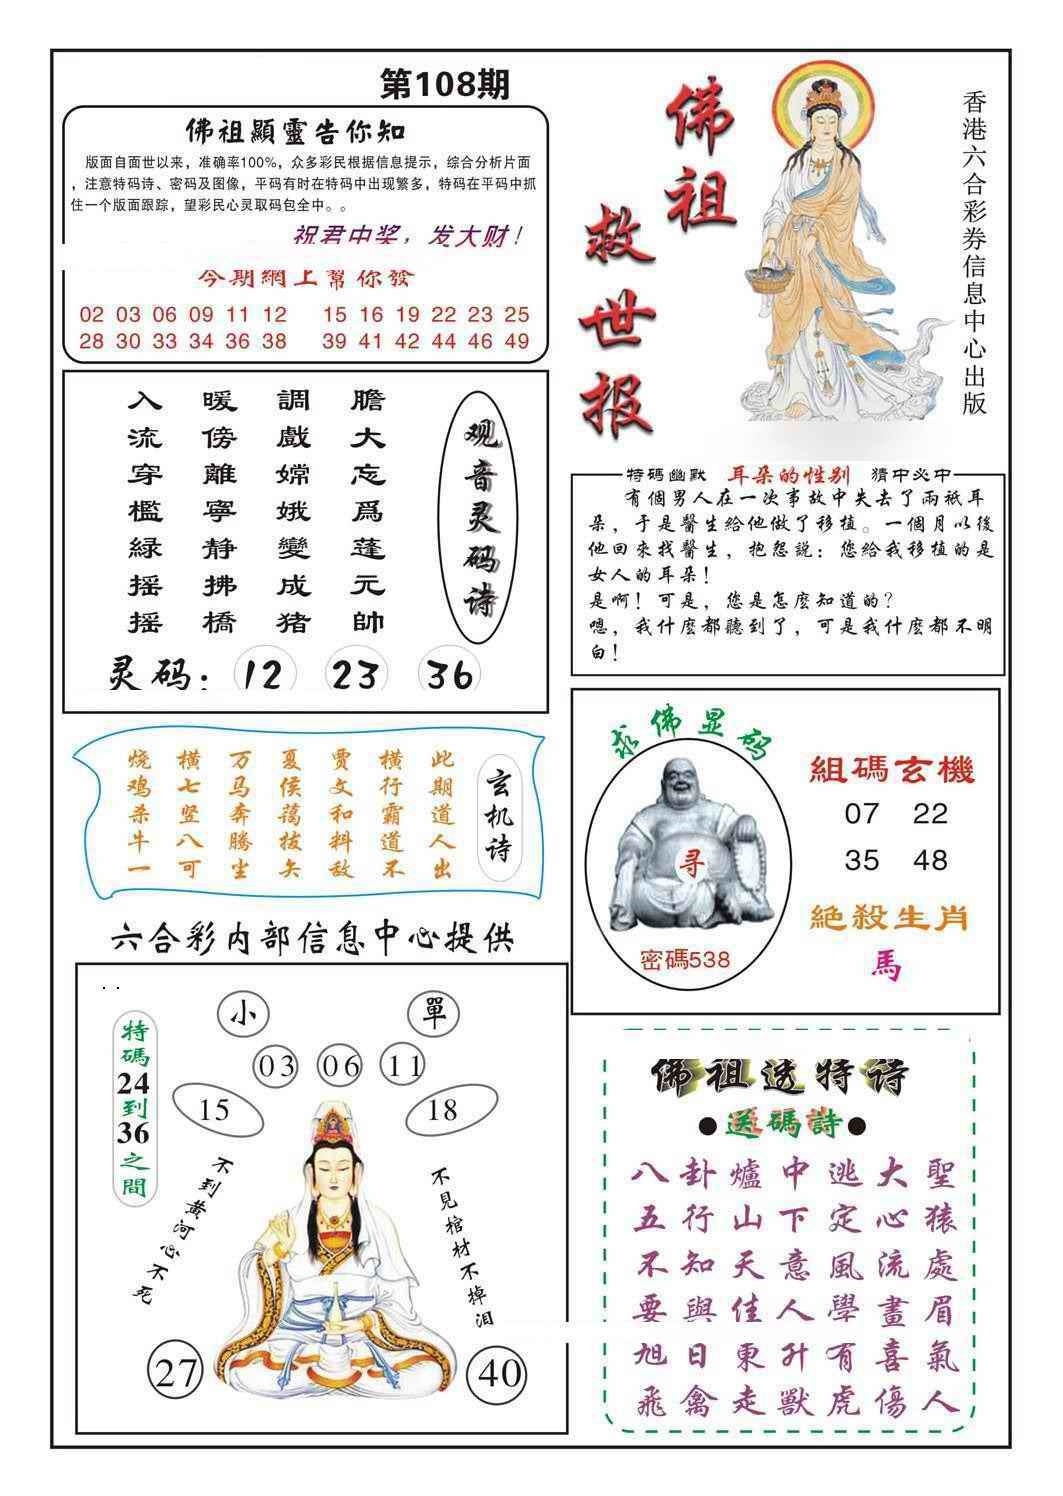 第108期
佛祖顯靈告你知
版面自面世以来，准确率100%，众多彩民根据信息提示，综合分析片面
，注意特码诗、密码及图像，平码有时在特码中出现繁多，特码在平码中抓
住一个版面跟踪，望彩民心灵取码包全中。。
祝君中奖，发大财！
今期網上幫你發
02 03 06 09 11 12 15 16 19 22 23 25
28 30 33 34 36 38 39 41 42 44 46 49
佛祖
救世报
香港六合彩券信息中心出版
观音灵码诗
膽大忘爲蓬元帥
調戲嫦娥變成猪
暖傍離寧静拂橋
入流穿檻緑摇摇
灵码：12 23 36
特碼幽默 耳朵的性别 猜中必中
有個男人在一次事故中失去了兩衹耳
朵，于是醫生給他做了移植。一個月以後
他回來找醫生，抱怨説：您給我移植的是
女人的耳朵！
是啊！可是，您是怎麽知道的？
嗯，我什麽都聽到了，可是我什麽都不明
白！
玄机诗
此期道人出
横行霸道不
贾文和料敌
夏侯蔼拔矢
万马奔腾生
横七竖八可
烧鸡杀牛一
求佛显码
寻
密碼538
組碼玄機
07 22
35 48
絕殺生肖
馬
六合彩内部信息中心提供
特碼24到36之間
小 單
03 06 11
15 18
不到黄河心不死
不见棺材不掉泪
27 40
佛祖透特诗
●送碼詩●
八卦爐中逃大聖
五行山下定心猿
不知天意風流處
要與佳人學畫眉
旭日東升有喜氣
飛禽走獸虎傷人